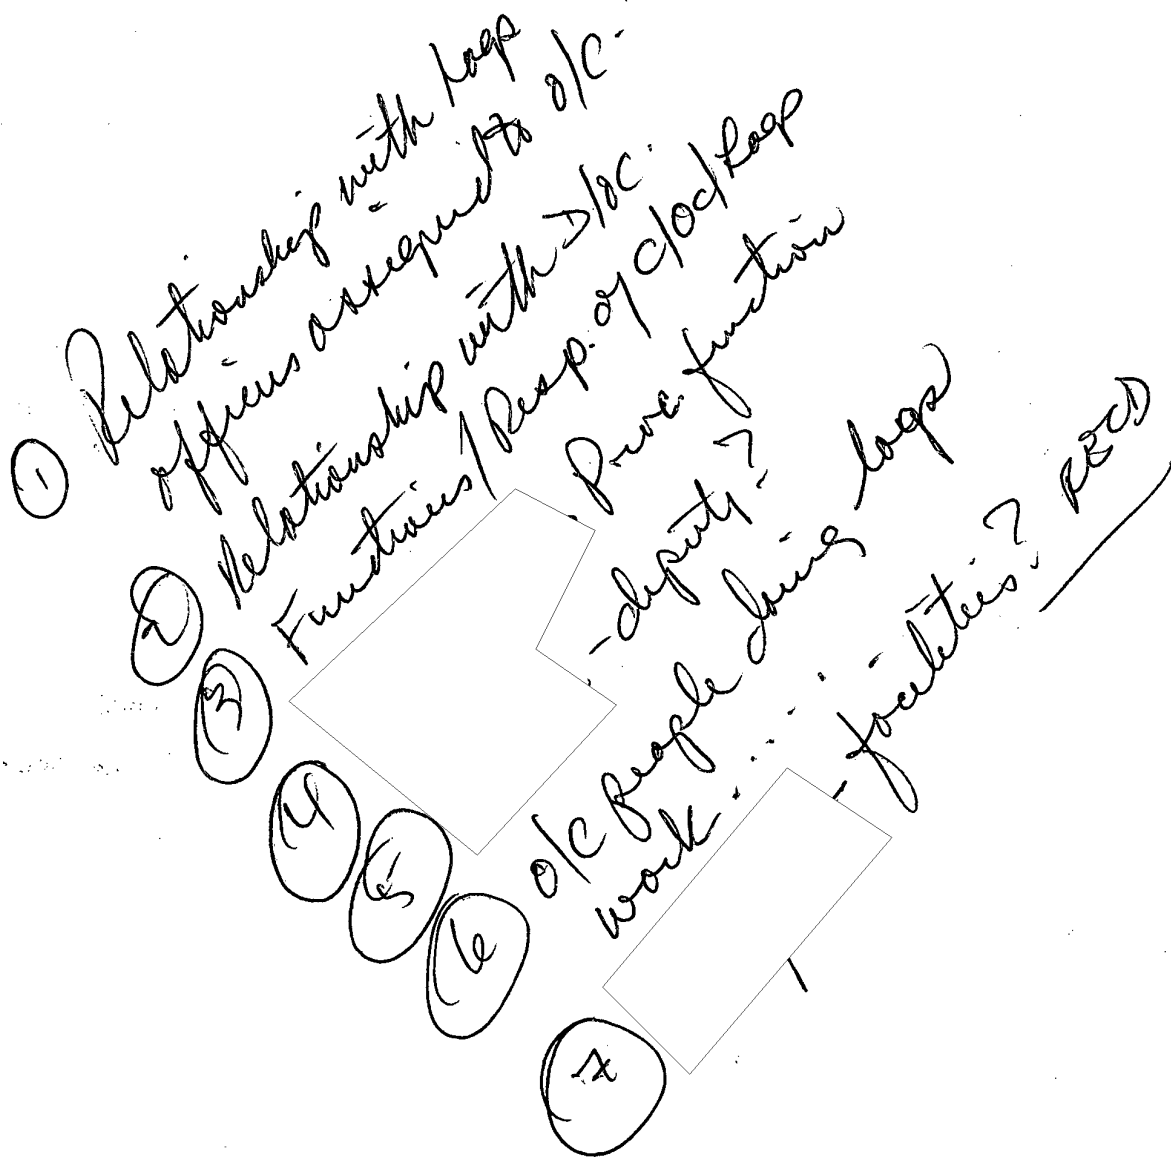 ① Relationship with Logs
officers assigned to O/C.
② Relationship with D/OC.
③ Functions/Resp. of C/OC/Log
④ Proc. function
⑤ - deputy?
⑥ O/C people doing logs
work...
⑦ - facilities? RECD